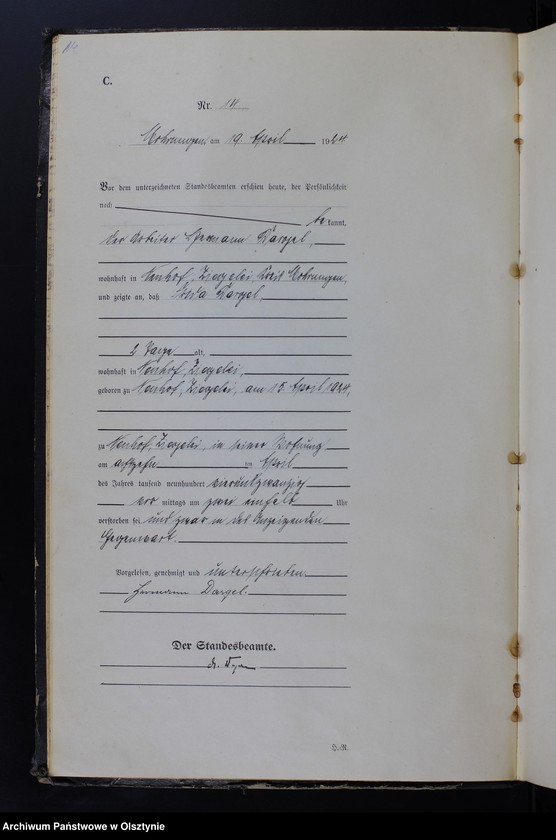 14
C.
Nr. 14
Mohrungen am 19. April 1924
Vor dem unterzeichneten Standesbeamten erschien heute, der Persönlichkeit
nach bekannt,
der Arbeiter Hermann Dargel,
wohnhaft in Neuhof, Ziegelei, Kreis Mohrungen,
und zeigte an, daß Dargel,
2 Tage alt,
wohnhaft in Neuhof, Ziegelei,
geboren zu Neuhof, Ziegelei, am 15. April 1924,
zu Neuhof, Ziegelei, in seiner Wohnung
am April
des Jahres tausend neunhundert vierundzwanzig
vor mittags um zwei einhalb Uhr
verstorben sei und zwar in des Anzeigenden
Gegenwart.
Vorgelesen, genehmigt und unterschrieben
Hermann Dargel.
Der Standesbeamte.
H.-R.
Archiwum Państwowe w Olsztynie